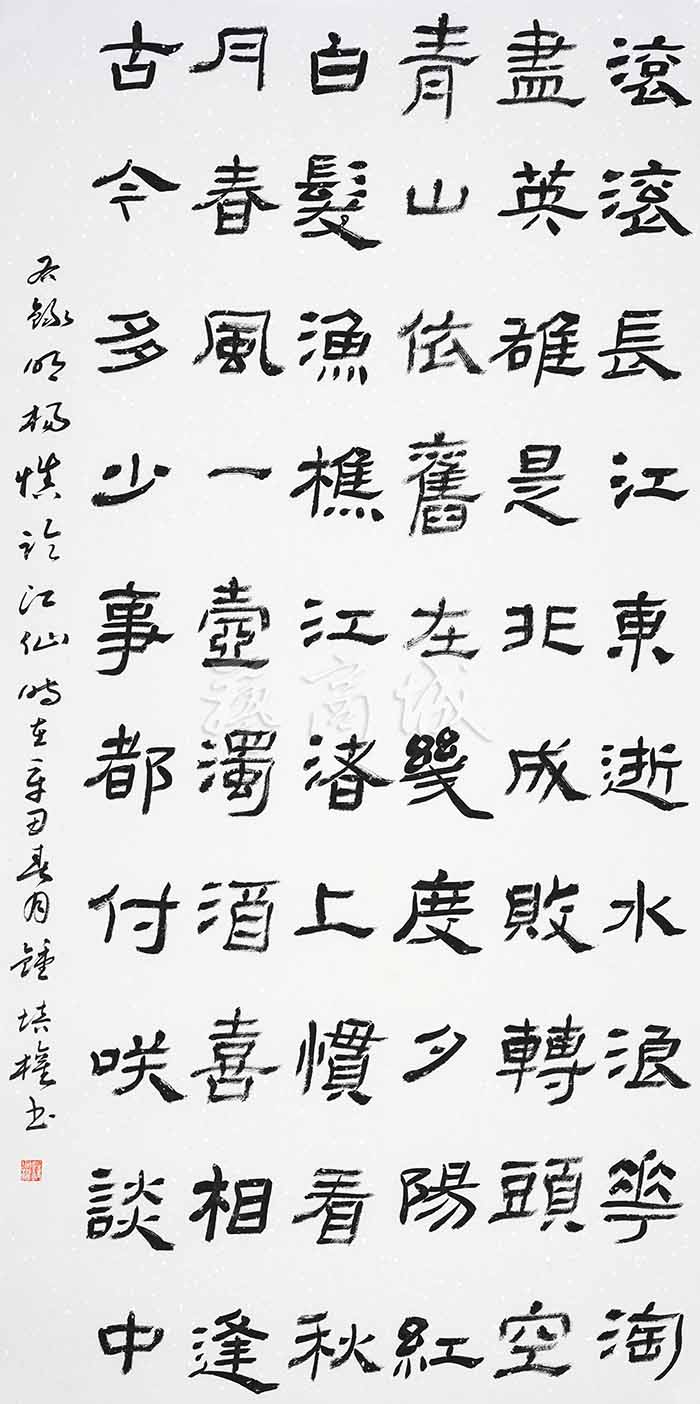 滾滾長江東逝水浪華淘
盡英雄是非成敗轉頭空
青山依舊在幾度夕陽紅
白髮漁樵江渚上慣看秋
月春風一壺濁酒喜相逢
古今多少事都付咲談中
右錄明楊慎臨江仙時在辛丑春月鍾培權書
藝高城